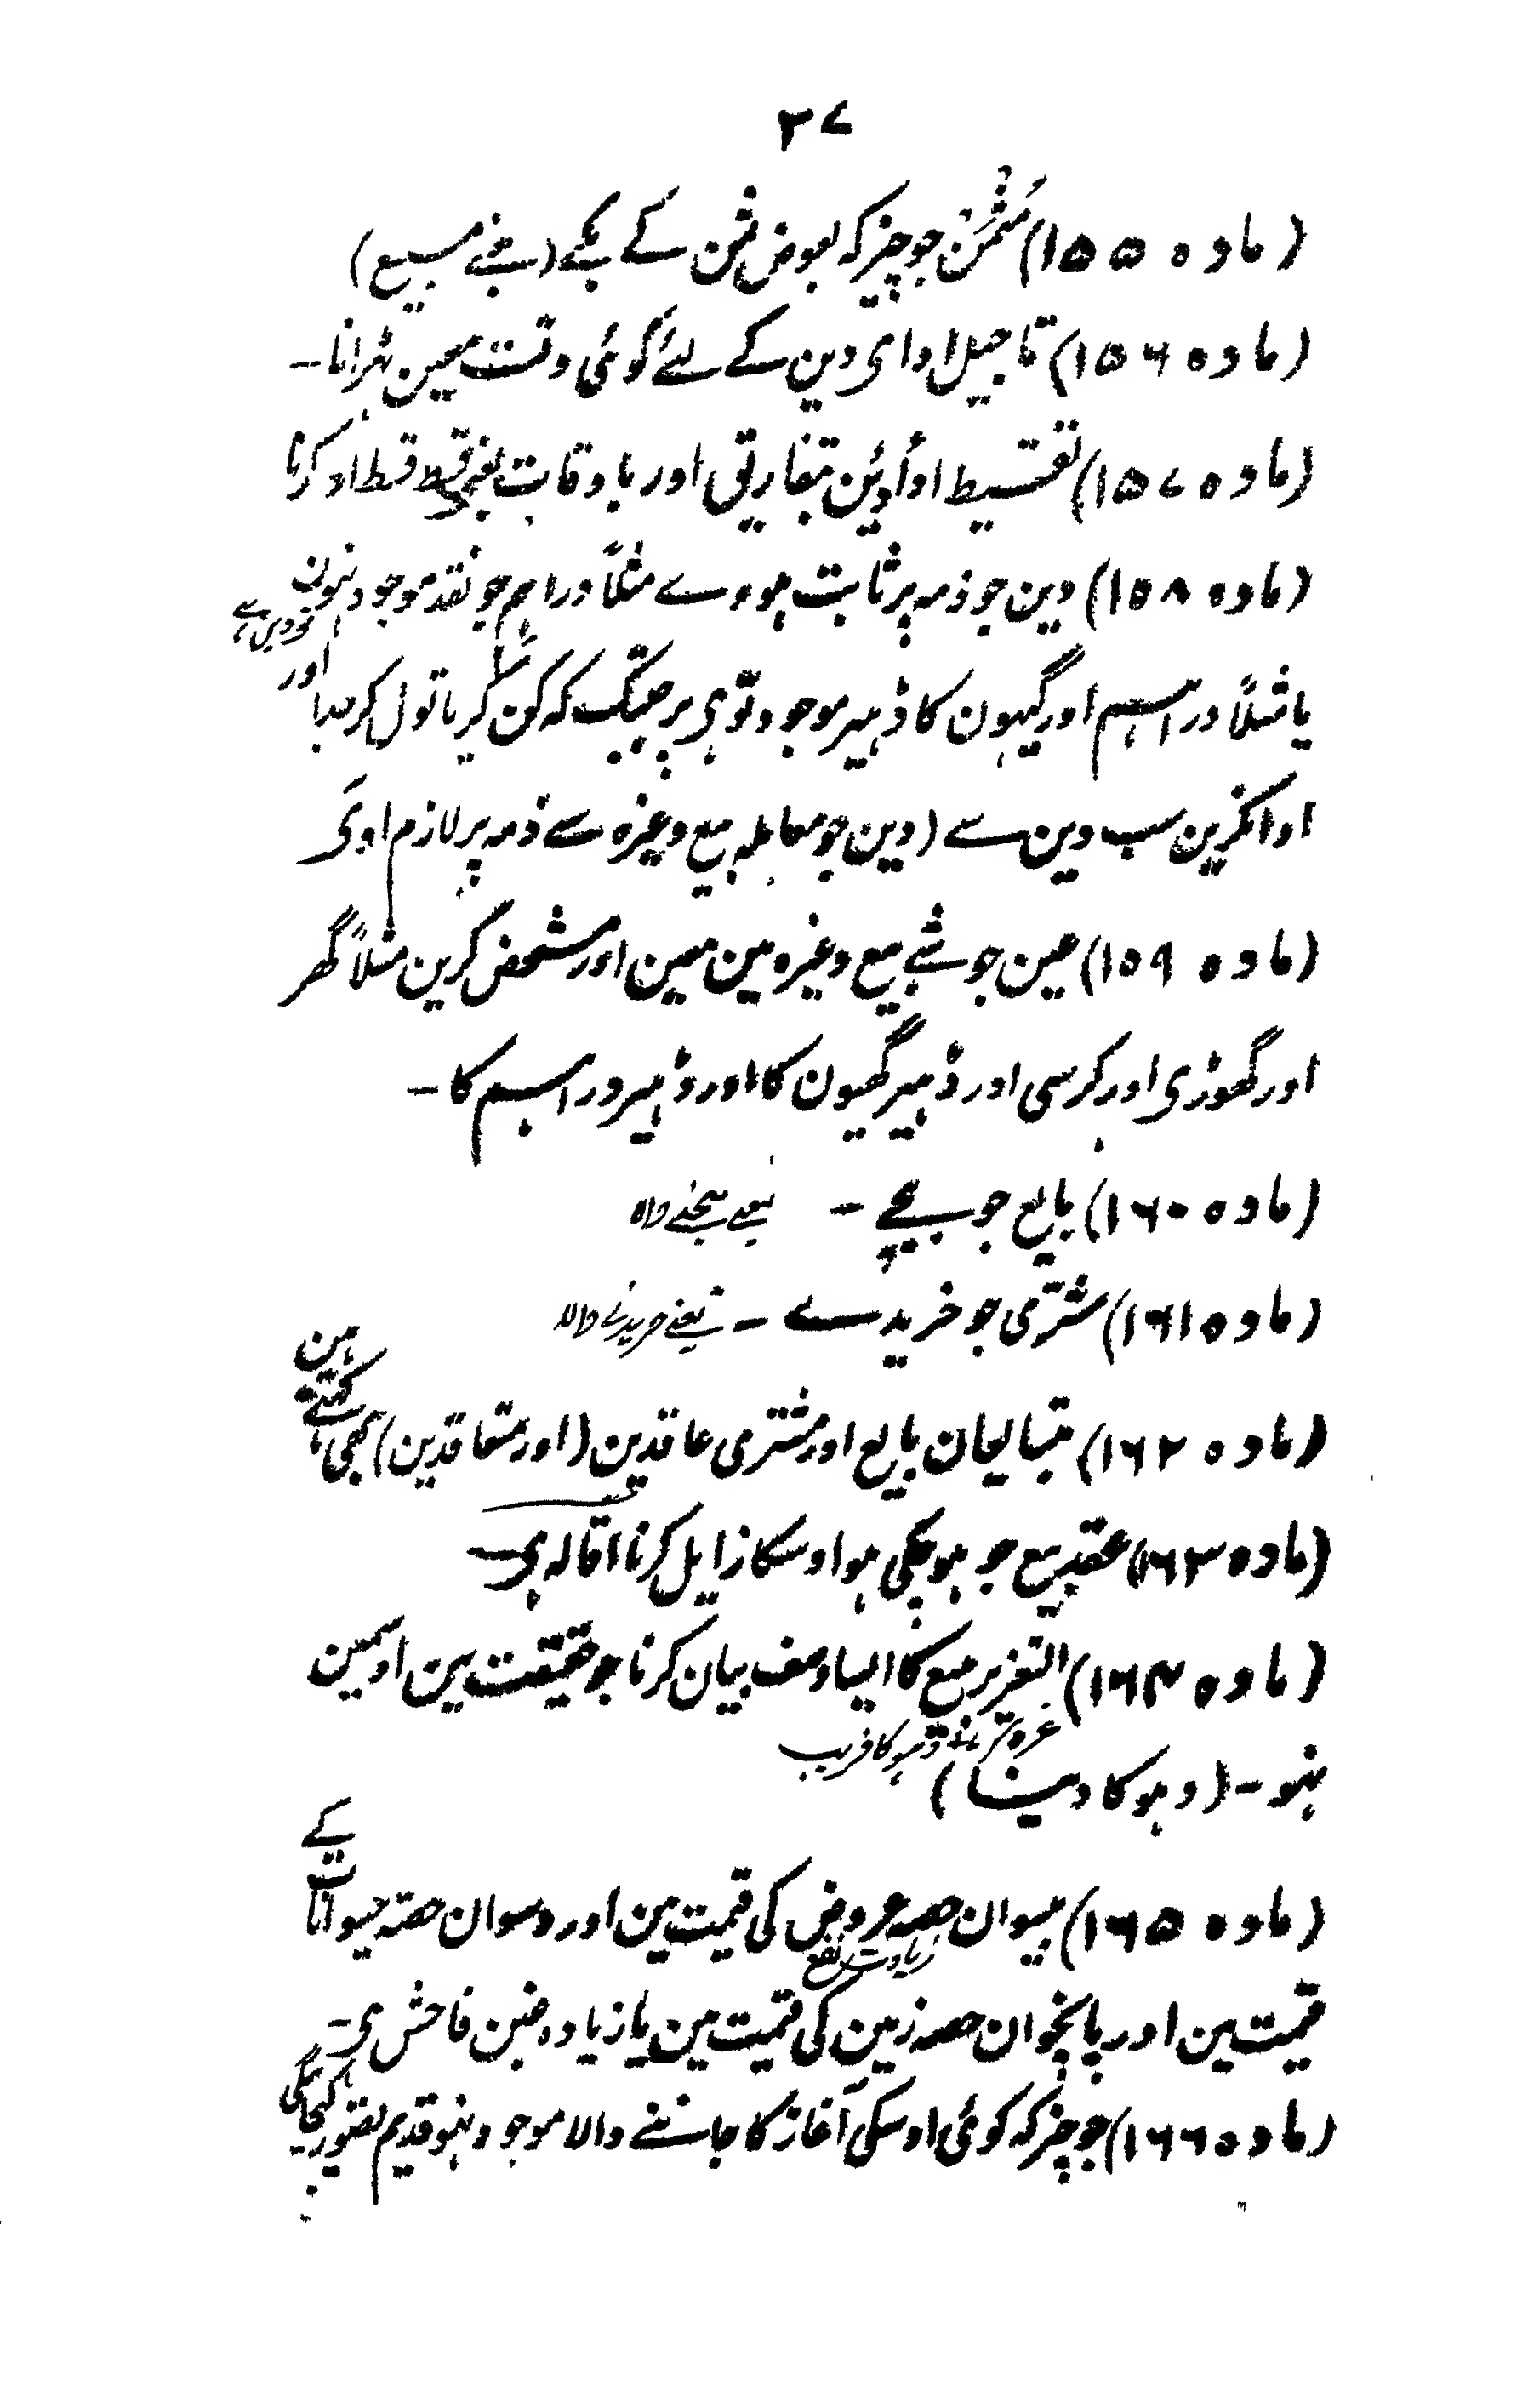 ۳۷
(مادہ ۱۵۵) مُثمَن جو چیز کہ بعوض ثمن کے بکے (یعنے مبیع)
(مادہ ۱۵۶) تاجیل ادای دین کے لئے کوئی وقت معین ٹہرانا۔
(مادہ ۱۵۷) تقسیط ادأ دین بتفاریق اور باوقات یعنی قسط قسط ادا کرنا
(مادہ ۱۵۸) دین جو ذمہ پر ثابت ہووے مثلاً دراہم جو نقد موجود نہون
یا مثلاً دراہم اور گیہون کا ڈہیر موجود تو ہی پر جبتک کہ گن کر یا تول کر جدا اور
ادا نکرین سب دین ہے (دین جو معاملہ بیع وغیرہ سے ذمہ پر لازم اوی
(مادہ ۱۵۹) عین جو شے بیع وغیرہ مین معین اور مشخص کرین مثلاً گھر
اور گھوڑی اور کرسی اور ڈہیر گھیون کا اور ڈہیر دراہم کا۔
(مادہ ۱۶۰) بایع جو بیچے ۔ یعنے بیچنے والا
(مادہ ۱۶۱) مشتری جو خریدے ۔ یعنے خریدنے والا
(مادہ ۱۶۲) متبایعان بایع اور مشتری عاقدین (اور متعاقدین) بھی کہتے ہین
(مادہ ۱۶۳) عقد بیع جو ہو چکی ہو اوسکا زایل کرنا اقالہ ہی۔
(مادہ ۱۶۴) التغریر مبیع کا ایسا وصف بیان کرنا جو حقیقت مین اوسمین
نہو۔ (دہوکا دینا)
دہوکا فریب
(مادہ ۱۶۵) بیسوان حصہ عروض کی قیمت مین اور دسوان حصہ حیوانات کے
قیمت مین اور پانچوان حصہ زمین کی قیمت مین یا زیادہ غبن فاحش ہی۔
(مادہ ۱۶۶) جو چیز کہ کوئی اوسکی آغاز کا جاننے والا موجود نہو قدیم تصور کیجائیگی